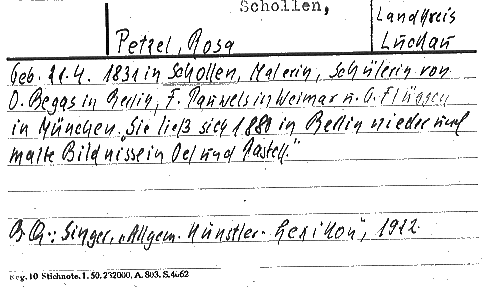 Schollen,
Landkreis
Petzel, Rosa
Luckau
Geb. 21.4. 1831 in Schollen, Malerin, Schülerin von
O. Begas in Berlin, F. Pauwels in Weimar u. G. Flüggen
in München. „Sie ließ sich 1880 in Berlin nieder und
malte Bildnisse in Oel und Pastell."
B.Qu: Singer, „Allgem. Künstler-Lexikon", 1922.
Reg. 10 Stichnote. I. 50. 232000, A. 803. S. 4662